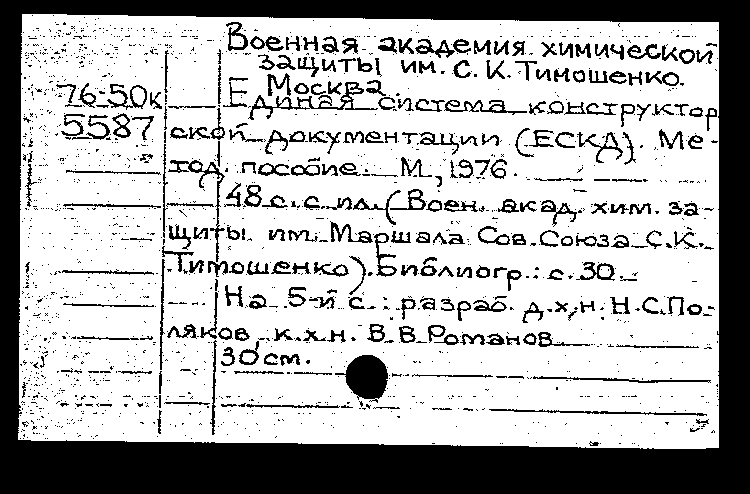 Военная академия химической
защиты им. С. К. Тимошенко.
Москва.
76-50к Единая система конструктор
5587 ской документации (ЕСКД). Ме-
тод. пособие. М, 1976.
48 с. с ил. (Воен. акад. хим. за-
щиты им. Маршала Сов. Союза С. К.
Тимошенко). Библиогр.: с. 30.
На 5-й с.: разраб. д.х.н. Н.С. По-
ляков, к.х.н. В.В. Романов
30 см.